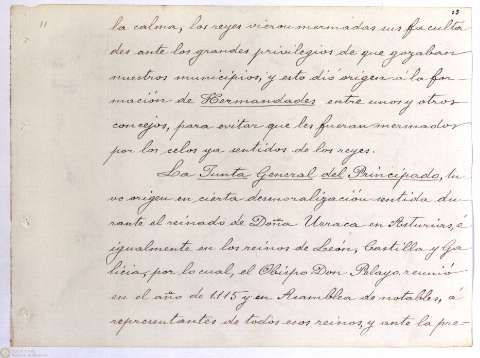 13
11
la calma, los reyes vieron mermadas sus faculta
des ante los grandes privilegios de que gozaban
nuestros municipios, y esto dió origen a la for-
mación de Hermandades entre unos y otros
concejos, para evitar que les fueran mermados
por los celos ya sentidos de los reyes.
La Junta General del Principado, tu
vo origen en cierta desmoralización sentida du-
rante el reinado de Doña Urraca en Asturias, é
igualmente en los reinos de León, Castilla y Ga
licia, por lo cual, el Obispo Don Pelayo reunió
en el año de 1.115 y en Asamblea de notables, á
representantes de todos esos reinos, y ante la pre-